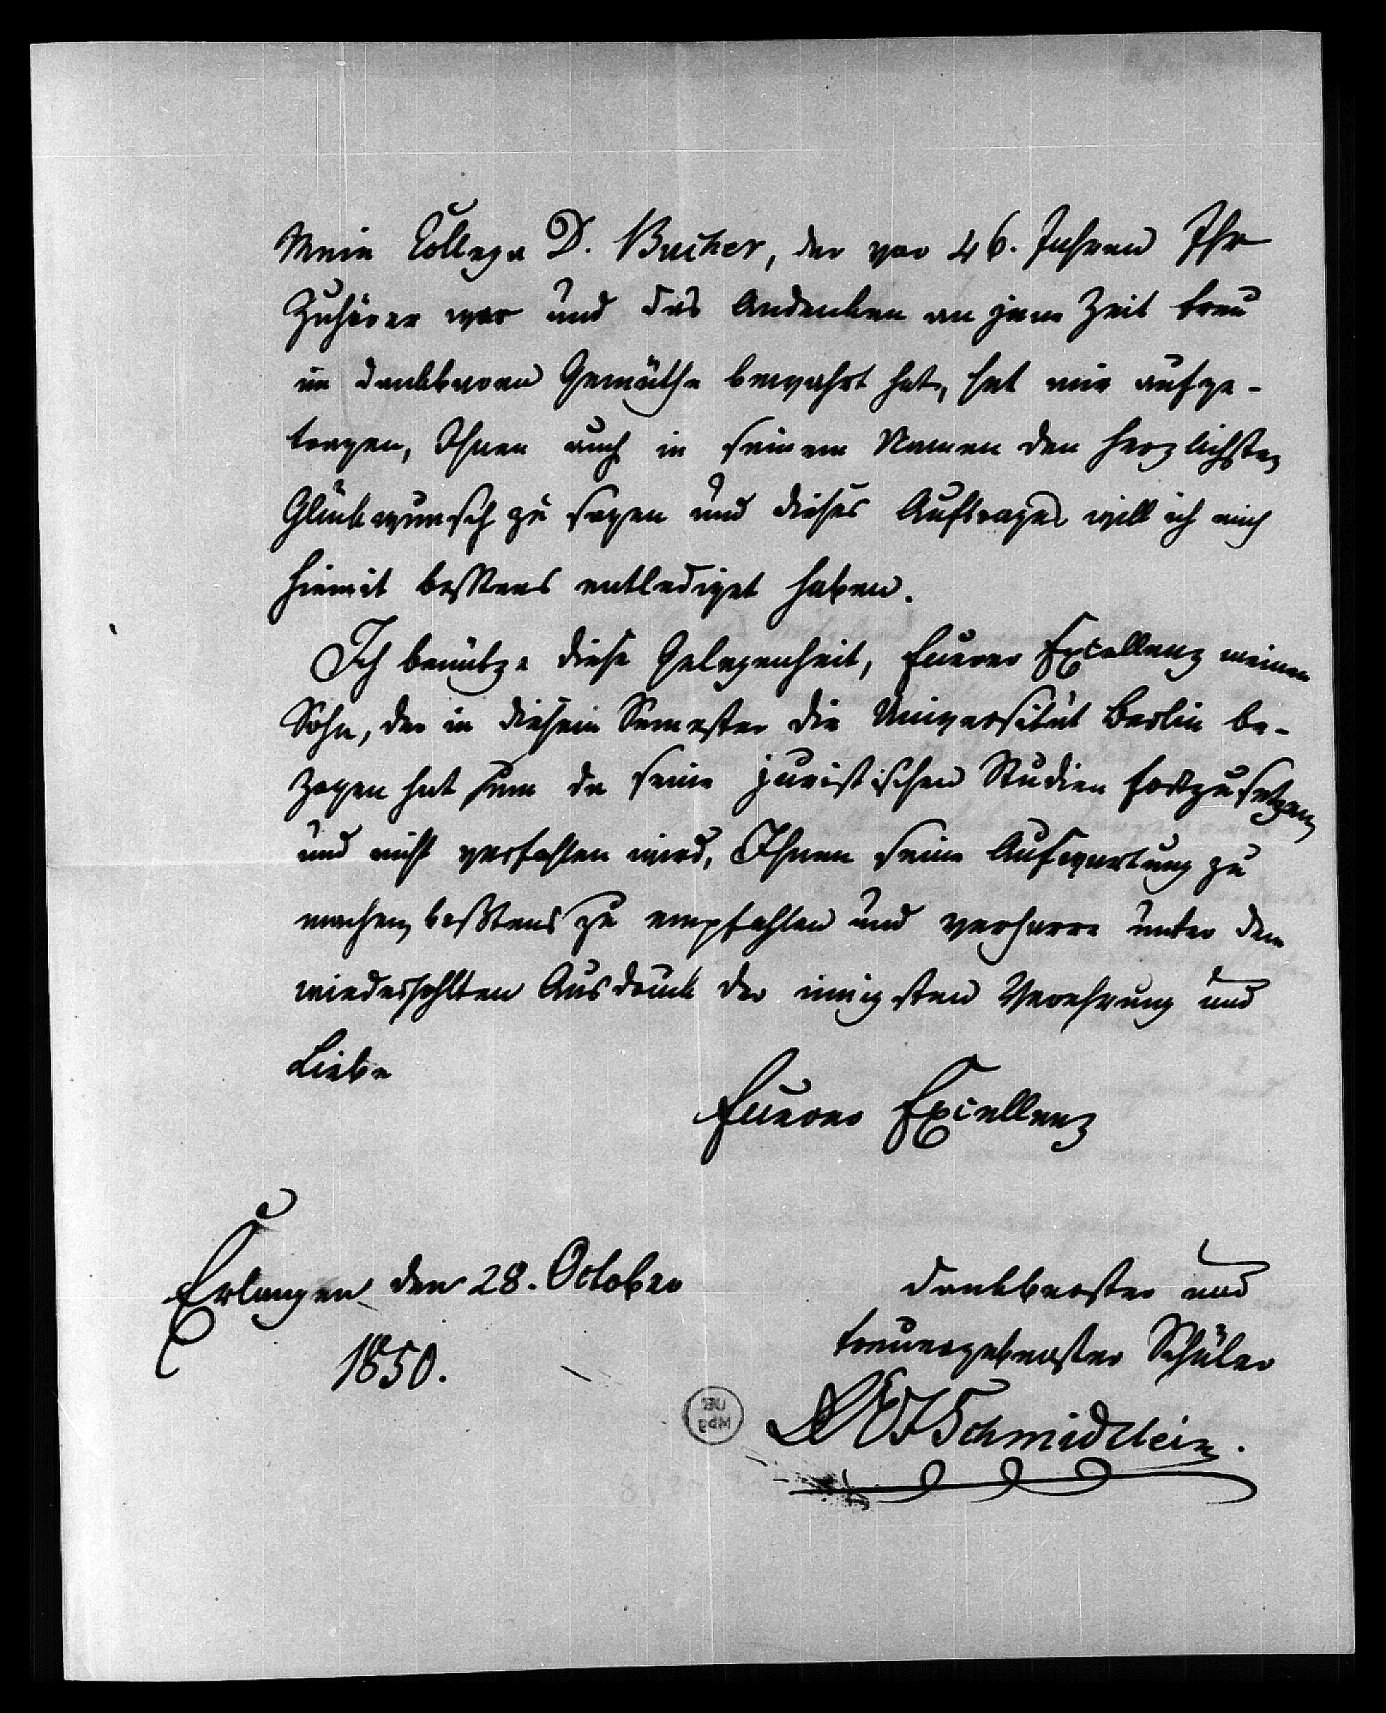 Mein College D. Bucher, der vor 46. Jahren Ihr
Zuhörer war und das Andenken an jene Zeit treu
im dankbaren Gemüthe bewahrt hat, hat mir aufge-
tragen, Ihnen auch in seinem Namen den herzlichsten
Glückwunsch zu sagen und dieses Auftrages will ich mich
hiemit bestens entlediget haben.
Ich benütze diese Gelegenheit, Euerer Excellenz meinen
Sohn, der in diesem Semester die Universität Berlin be-
zogen hat um da seine juristischen Studien fortzusetzen
und nicht verfehlen wird, Ihnen seine Aufwartung zu
machen, bestens zu empfehlen und verharre unter dem
wiederholten Ausdruck der innigsten Verehrung und
Liebe
Euerer Excellenz
Erlangen den 28. October
1850.
dankbarster und
treuergebenster Schüler
Schmidtlein.